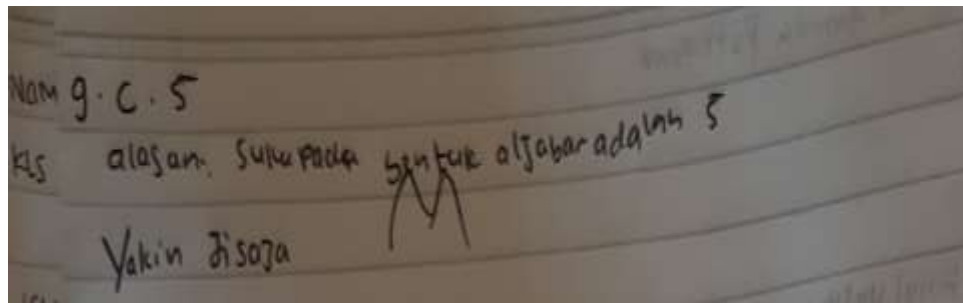 Nam
9. C. 5
kls
alasan. Suku pada bentuk aljabar adalah 5
Yakin Jisoja